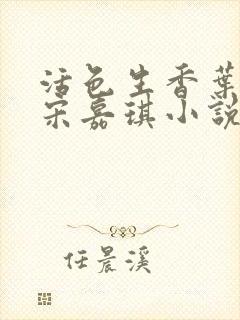 活色生香葉
宋嘉琪小說
任晨溪